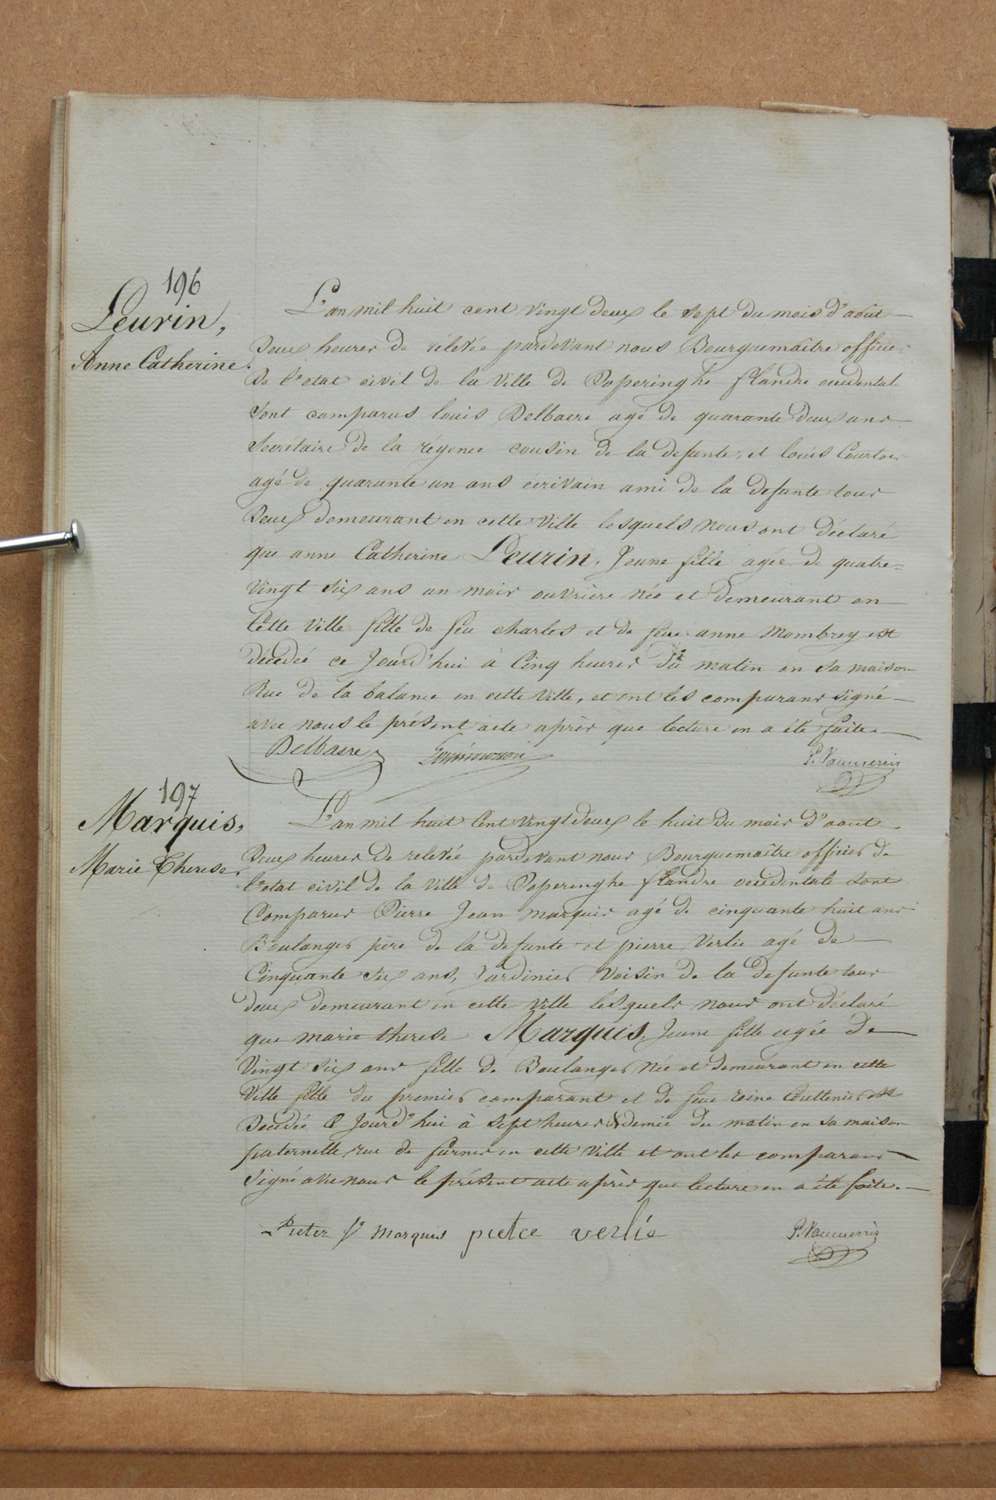 196
Leurin,
Anne Catherine.
L'an mil huit cent vingt deux le sept du mois d'aout
Deux heures de rélevée pardevant nous Bourguemaître officier
De l'etat civil de la Ville de Poperinghe flandre occidental
Sont comparus louis Delbaere agé de quarante deux ans
Secrétaire de la régence cousin de la defunte, et louis
agé de quarante un ans écrivain ami de la defunte tous
Deux demeurant en cette Ville lesquels nous ont déclaré
que anne Catherine Leurin, Jeune fille agée de quatre=
Vingt six ans un mois ouvrière née et demeurant en
Cette Ville fille de feu charles et de feue anne Mombrey est
décédée ce Jourd'hui à Cinq heures du matin en sa maison
Rue de la balance en cette Ville, et ont les comparans signé
avec nous le présent acte après que lecture en a été faite.
Delbaere P. Vanmerris
197
Marquis,
Marie Therese.
L'an mil huit Cent Vingt deux le huit du mois d'aout
Deux heures de relevée pardevant nous Bourguemaître officier de
l'etat civil de la Ville de Poperinghe flandre occidentale sont
Comparus Pierre Jean marquis agé de cinquante huit ans
Boulanger père de la defunte et pierre Verlie agé de
Cinquante six ans, Jardinier Voisin de la defunte tous
deux demeurant en cette Ville lesquels nous ont déclaré
que marie therese Marquis Jeune fille agée de
Vingt six ans fille de Boulanger née et demeurant en cette
Ville fille du premier comparant et de feue reine Couttenier est
Décédée ce Jourd'hui à sept heures & demie du matin en sa maison
paternelle, rue de furnes en cette Ville et ont les comparans
Signé avec nous le présent acte après que lecture en a été faite.
Pieter J marquis pieter verlie P. Vanmerris